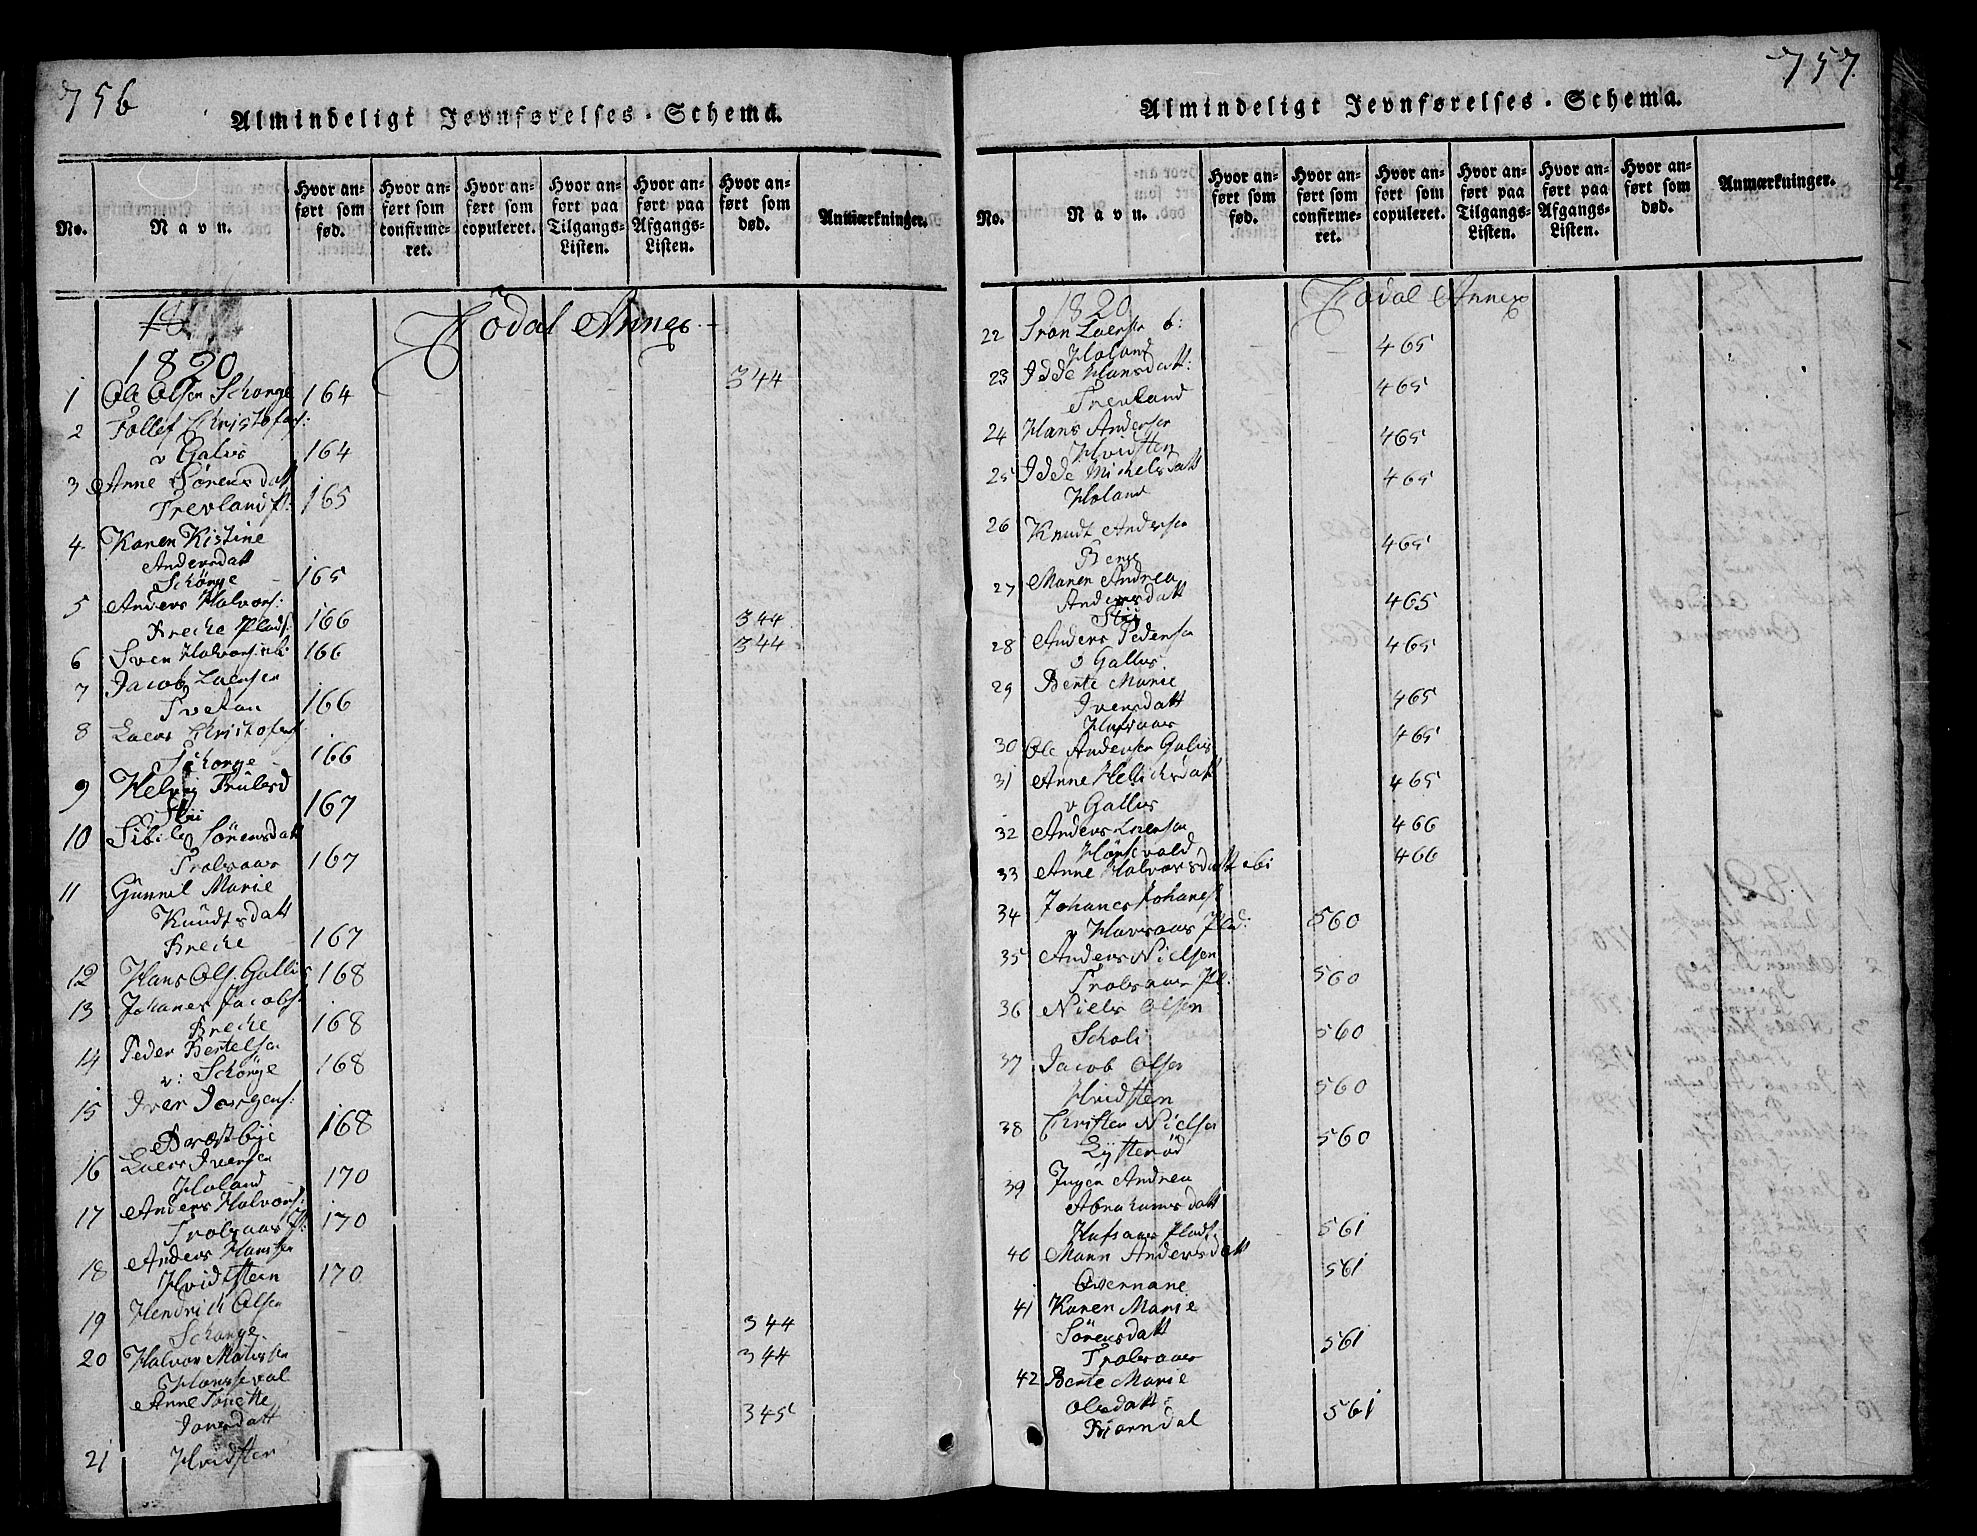 756
Almindeligt Jevnførelses-Schema.
No.
Navn.
Hvor anført som fød.
Hvor anført som confirmeret.
Hvor anført som copuleret.
Hvor anført paa Tilgangs-Listen.
Hvor anført paa Afgangs-Listen.
Hvor anført som død.
Anmærkninger.
Södal Annex
1820
1 Ole Olsen Schonge 164 344
2 Tollef Christofers:
v Galus 164
3 Anne Sørensdatt
Trevland 165
4 Karen Kistine
Andersdatt
Schønge 165
5 Anders Halvors:
Breche Plads: 166 344
6 Sven Halvors: ibi 166 344
7 Jacob Laersen
Tvetan 166
8 Laers Christofers:
Schonge 166
9 Helvig Trulsd
Stii 167
10 Sibile Sørensdatt
Trolsaas 167
11 Gunnel Marie
Knudtsdatt
Breche 167
12 Hans Ols. Gallis 168
13 Johanes Jacobs:
Breche 168
14 Peder Bertelsen
v: Schønge 168
15 Iver Jørgens:
Brostbye 168
16 Laers Iversen
Holand 170
17 Anders Halvors:
Trolsaas Pl: 170
18 Anders Hansen
Hvidtsteen 170
19 Hendrich Olsen
Schonge 344
20 Halvor Matissen
Honseval 344
Anne Tonette
Joensdatt 345
21 Hvidsten
757
Almindeligt Jevnførelses-Schema.
No.
Navn.
Hvor anført som fød.
Hvor anført som confirmeret.
Hvor anført som copuleret.
Hvor anført paa Tilgangs-Listen.
Hvor anført paa Afgangs-Listen.
Hvor anført som død.
Anmærkninger.
1820 Södal Annex
22 Iron Laersen b:
Holand 465
23 Idde Hansdatt:
Trevland 465
24 Hans Andersen
Hvidsten 465
25 Idde Michelsdatt 465
Holand
26 Knudt Andersen
Berge 465
27 Maren Andrea
Andersdatt 465
Stii
28 Anders Pedersen 465
v Gallus.
29 Berte Marie
Iversdatt 465
Hufsaas
30 Ole Andersen Galus 465
31 Anne Hellichsdatt 465
v Gallus
32 Anders Laersen 466
Hønsevald
33 Anne Halvorsdatt ibi 466
34 Johanes Johanes:
v Havsaas Pld: 560
35 Anders Nielsen
Trolsaas Pl: 560
36 Niels Olsen
Scholi 560
37 Jacob Olsen
Hvidsten 560
38 Christen Nielsen
Lytterød 560
39 Ingen Andrea
Abrahamsdatt
Hufsaas Plads 561
40 Maren Andersdatt 561
Overnane
41 Karen Marie
Sørensdatt 561
Trolsaas
42 Berte Marie
Olsdatt: 561
Biørndal